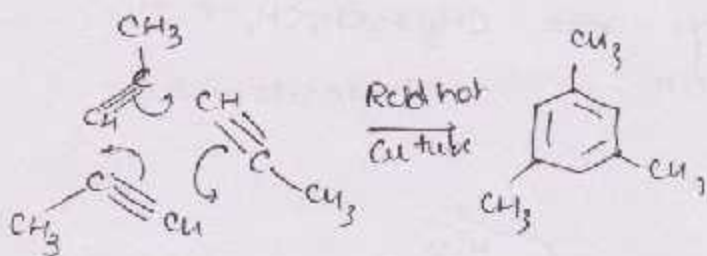 CH3
C
CH
CH
C
CH3
C
CH
CH3
Red hot
Cu tube
CH3
CH3
CH3